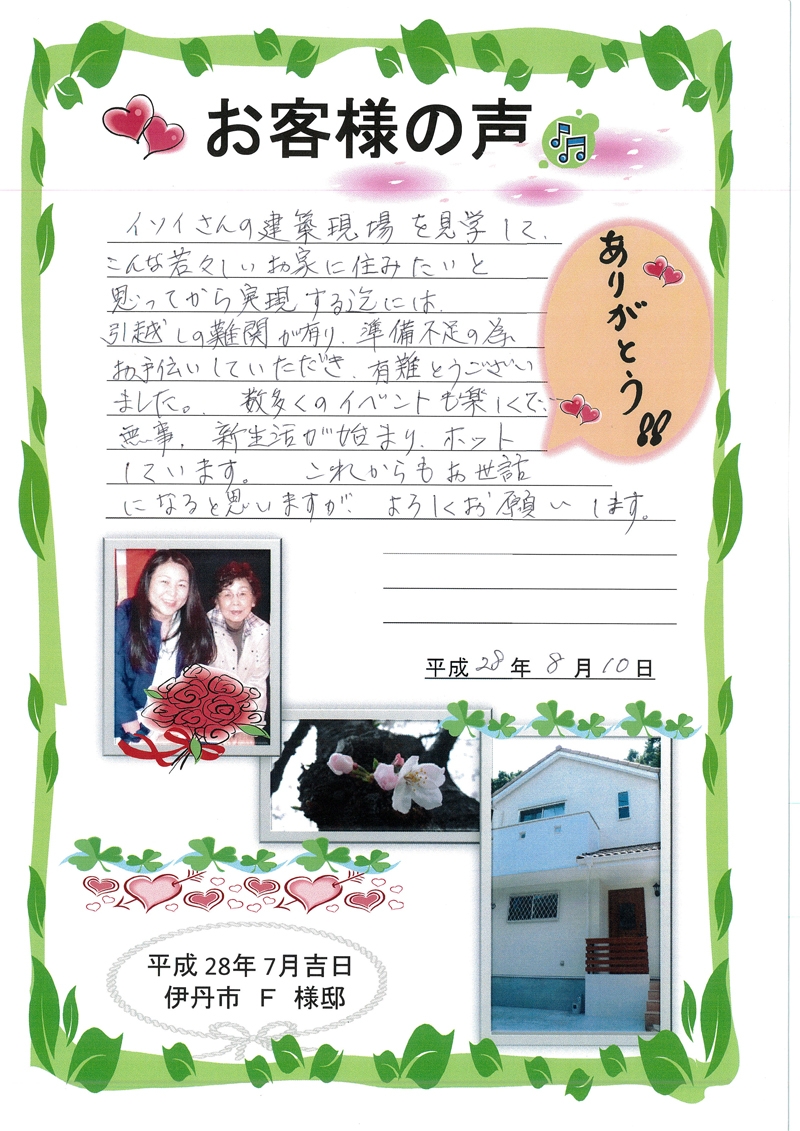 お客様の声
イソイさんの建築現場を見学して、
こんな若々しいお家に住みたいと
思ってから実現する迄には、
引越しの難関が有り、準備不足の為
お手伝いしていただき、有難とうござい
ました。. 数多くのイベントも楽しくて、
無事、新生活が始まり、ホット
しています。 これからもお世話
になると思いますが よろしくお願いします。
ありがとう!!
平成28年8月10日
平成28年7月吉日
伊丹市 F 様邸